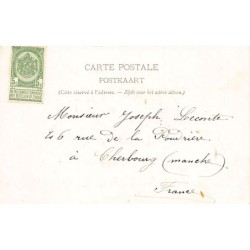 CARTE POSTALE
POSTKAART
(Côté réservé à l'adresse. — Zijde voor het adres alleen.)
Monsieur Joseph Lecomte
6 rue de la Poudrière
à Cherbourg (manche)
France